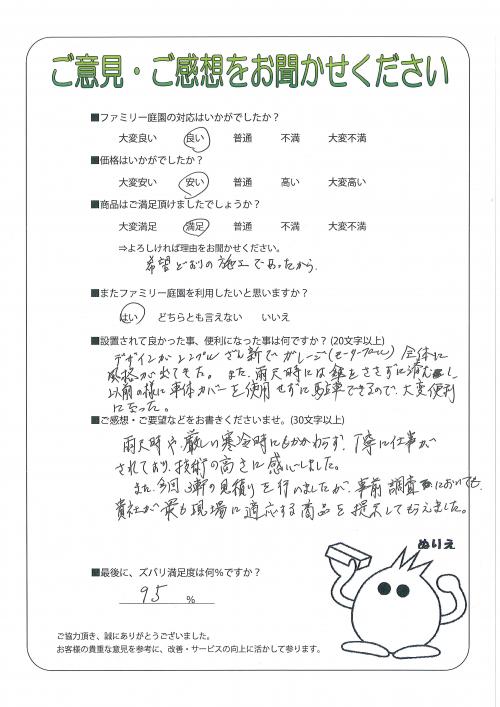 ご意見・ご感想をお聞かせください
■ファミリー庭園の対応はいかがでしたか？
大変良い 良い 普通 不満 大変不満
■価格はいかがでしたか？
大変安い 安い 普通 高い 大変高い
■商品はご満足頂けましたでしょうか？
大変満足 満足 普通 不満 大変不満
⇒よろしければ理由をお聞かせください。
希望どおりの施工であったから.
■またファミリー庭園を利用したいと思いますか？
はい どちらとも言えない いいえ
■設置されて良かった事、便利になった事は何ですか？(20文字以上)
デザインがシンプル ざん新で ガレージ 全体に
風格が出てきた。また、雨天時には傘をささずに済むし
以前の様に車体カバーを使用せずに駐車できるので、大変便利
になった。
■ご感想・ご要望などをお書きくださいませ。(30文字以上)
雨天時や、厳しい寒冷時にもかかわらず、丁寧に仕事が
されており、技術の高さに感心しました。
また、今回3軒の見積りを行いましたが、事前調査においても、
貴社が最も現場に適応する商品を提示してもらえました。
ぬりえ
■最後に、ズバリ満足度は何%ですか？
95 %
ご協力頂き、誠にありがとうございました。
お客様の貴重な意見を参考に、改善・サービスの向上に活かして参ります。